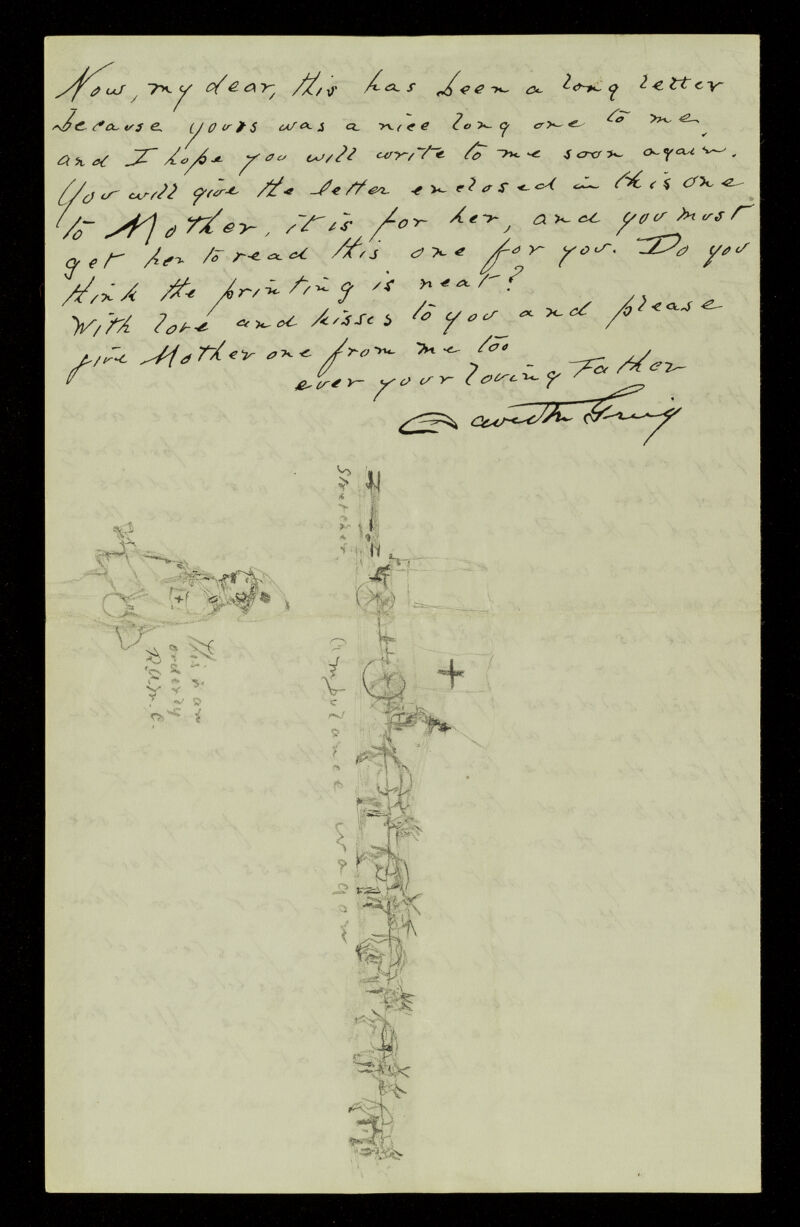 Now, my dear, this has been a long letter
because yours was a nice long one to me,
and I hope you will write to me soon again.
You will give the letter enclosed in this one
to Mother, it is for her, and you must
get her to read this one for you. Do you
think the printing is neat?
With love and kisses to you and please
give Mother one from me too
ever your loving Father
Stretcher.
Ambulance wagon
This is an
orderly
R.A.M.C.